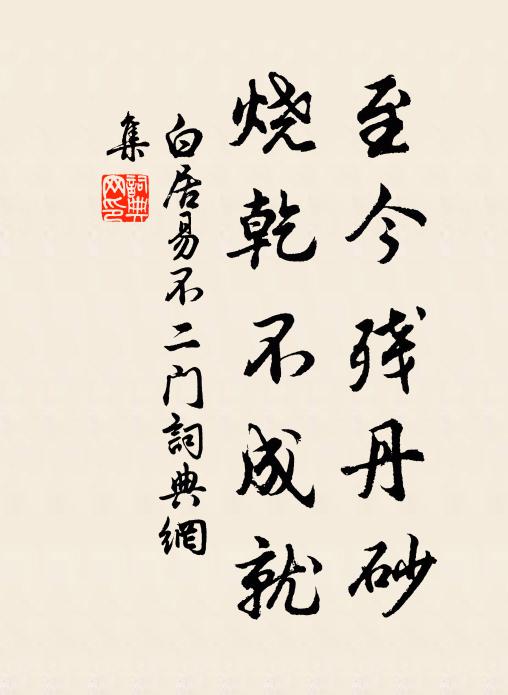 至今残丹砂
烧乾不成就
白居易不二门詞典網
集
詞典
网印